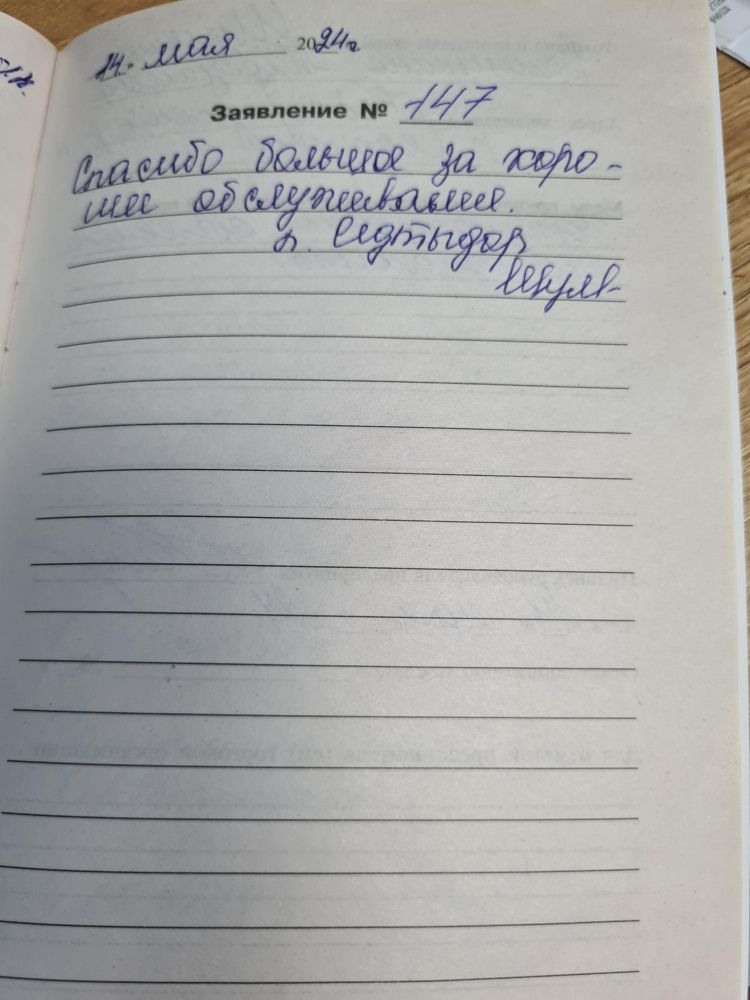 14. мая 2024г
Заявление № 147
Спасибо большое за хоро-
шее обслуживание.